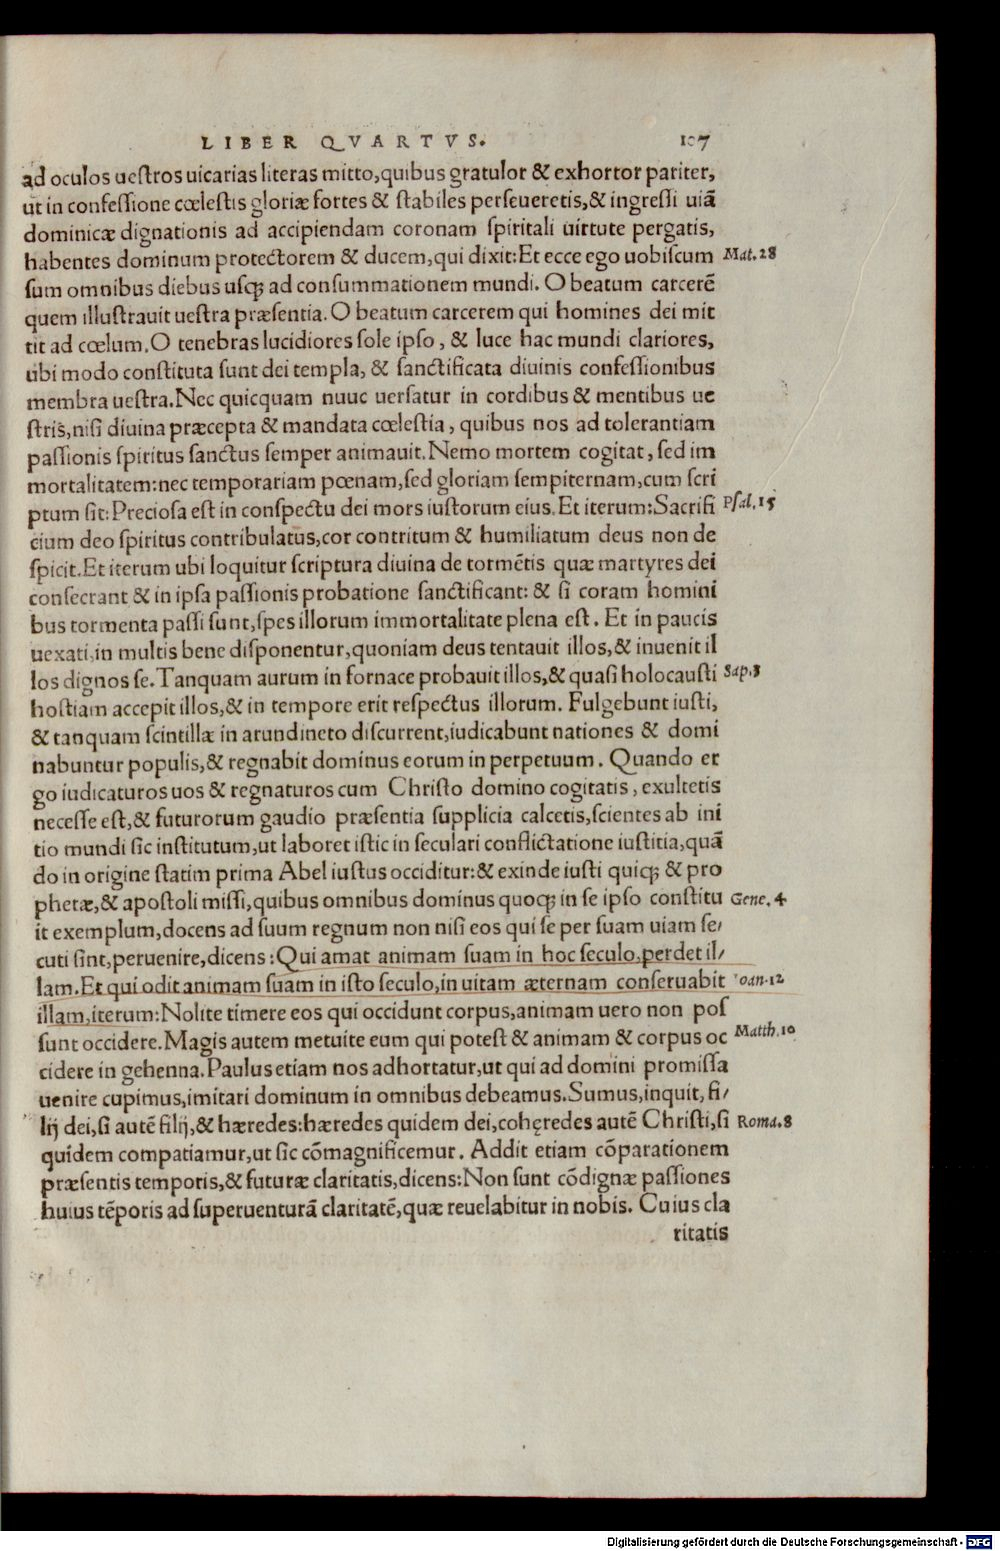 LIBER QVARTVS. 107
ad oculos uestros uicarias literas mitto,quibus gratulor & exhortor pariter,
ut in confessione cœlestis gloriæ fortes & stabiles perseueretis,& ingressi uiā
dominicæ dignationis ad accipiendam coronam spiritali uirtute pergatis,
habentes dominum protectorem & ducem,qui dixit:Et ecce ego uobiscum Mat.28
sum omnibus diebus usq; ad consummationem mundi. O beatum carcerē
quem illustrauit uestra præsentia. O beatum carcerem qui homines dei mit
tit ad cœlum. O tenebras lucidiores sole ipso, & luce hac mundi clariores,
ubi modo constituta sunt dei templa, & sanctificata diuinis confessionibus
membra uestra. Nec quicquam nuuc uersatur in cordibus & mentibus ue
stris,nisi diuina præcepta & mandata cœlestia, quibus nos ad tolerantiam
passionis spiritus sanctus semper animauit. Nemo mortem cogitat, sed im
mortalitatem:nec temporariam pœnam,sed gloriam sempiternam,cum scri
ptum sit:Preciosa est in conspectu dei mors iustorum eius. Et iterum:Sacrifi Psal.15
cium deo spiritus contribulatus,cor contritum & humiliatum deus non de
spicit. Et iterum ubi loquitur scriptura diuina de tormētis quæ martyres dei
consecrant & in ipsa passionis probatione sanctificant: & si coram homini
bus tormenta passi sunt,spes illorum immortalitate plena est. Et in paucis
uexati,in multis bene disponentur,quoniam deus tentauit illos,& inuenit il
los dignos se. Tanquam aurum in fornace probauit illos,& quasi holocausti Sap.3
hostiam accepit illos,& in tempore erit respectus illorum. Fulgebunt iusti,
& tanquam scintillæ in arundineto discurrent,iudicabunt nationes & domi
nabuntur populis,& regnabit dominus eorum in perpetuum. Quando er
go iudicaturos uos & regnaturos cum Christo domino cogitatis, exultetis
necesse est,& futurorum gaudio præsentia supplicia calcetis,scientes ab ini
tio mundi sic institutum,ut laboret istic in seculari conflictatione iustitia,quā
do in origine statim prima Abel iustus occiditur:& exinde iusti quiq; & pro
phetæ,& apostoli missi,quibus omnibus dominus quoq; in se ipso constitu Gene.4
it exemplum,docens ad suum regnum non nisi eos qui se per suam uiam se/
cuti sint,peruenire,dicens:Qui amat animam suam in hoc seculo,perdet il/
lam. Et qui odit animam suam in isto seculo,in uitam æternam conseruabit Ioan.12
illam,iterum:Nolite timere eos qui occidunt corpus,animam uero non pos
sunt occidere. Magis autem metuite eum qui potest & animam & corpus oc Matth.10
cidere in gehenna. Paulus etiam nos adhortatur,ut qui ad domini promissa
uenire cupimus,imitari dominum in omnibus debeamus. Sumus,inquit,fi/
lij dei,si autē filij,& hæredes:hæredes quidem dei,cohęredes autē Christi,si Roma.8
quidem compatiamur,ut sic cōmagnificemur. Addit etiam cōparationem
præsentis temporis,& futuræ claritatis,dicens:Non sunt cōdignæ passiones
huius tēporis ad superuenturā claritatē,quæ reuelabitur in nobis. Cuius cla
ritatis
Digitalisierung gefördert durch die Deutsche Forschungsgemeinschaft - DFG